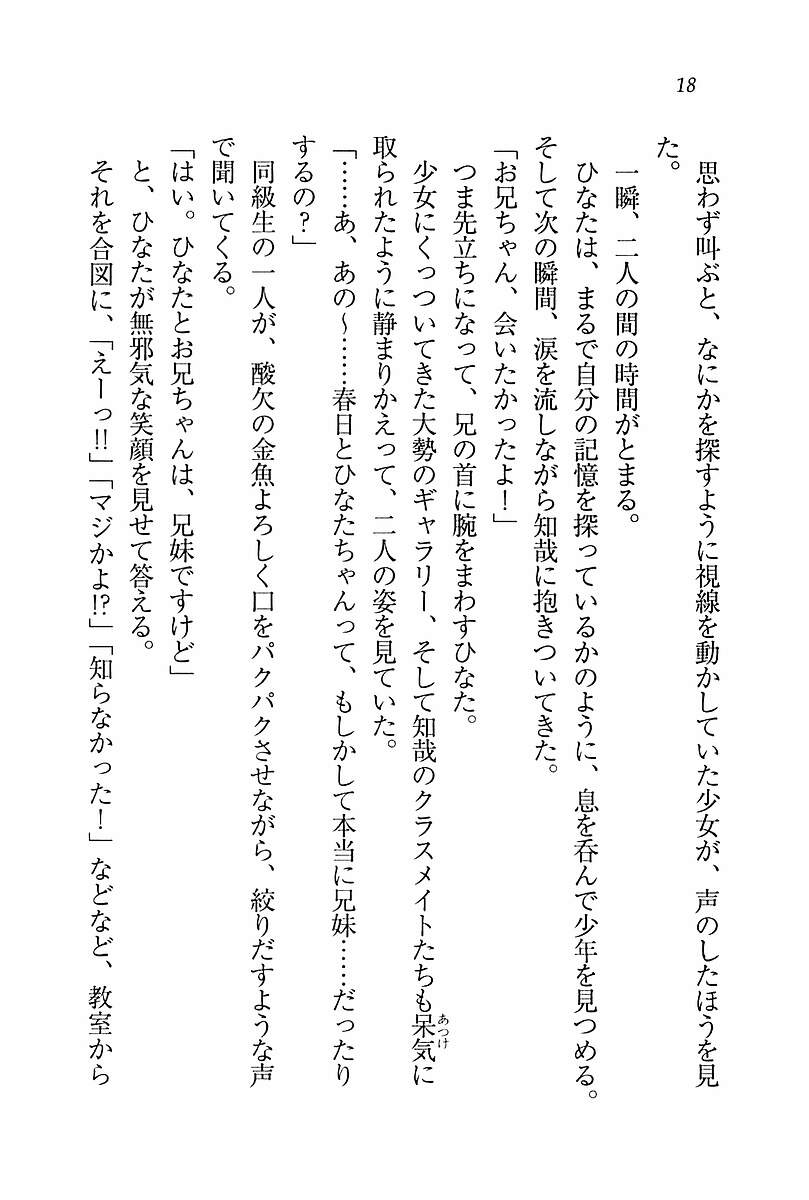 18
思わず叫ぶと、なにかを探すように視線を動かしていた少女が、声のしたほうを見
た。
一瞬、二人の間の時間がとまる。
ひなたは、まるで自分の記憶を探っているかのように、息を呑んで少年を見つめる。
そして次の瞬間、涙を流しながら知哉に抱きついてきた。
「お兄ちゃん、会いたかったよ！」
つま先立ちになって、兄の首に腕をまわすひなた。
少女にくっついてきた大勢のギャラリー、そして知哉のクラスメイトたちも呆気に
あつけ
取られたように静まりかえって、二人の姿を見ていた。
「……あ、あの〜……春日とひなたちゃんって、もしかして本当に兄妹……だったり
するの？」
同級生の一人が、酸欠の金魚よろしく口をパクパクさせながら、絞りだすような声
で聞いてくる。
「はい。ひなたとお兄ちゃんは、兄妹ですけど」
と、ひなたが無邪気な笑顔を見せて答える。
それを合図に、「えーっ!!」「マジかよ!?」「知らなかった！」などなど、教室から